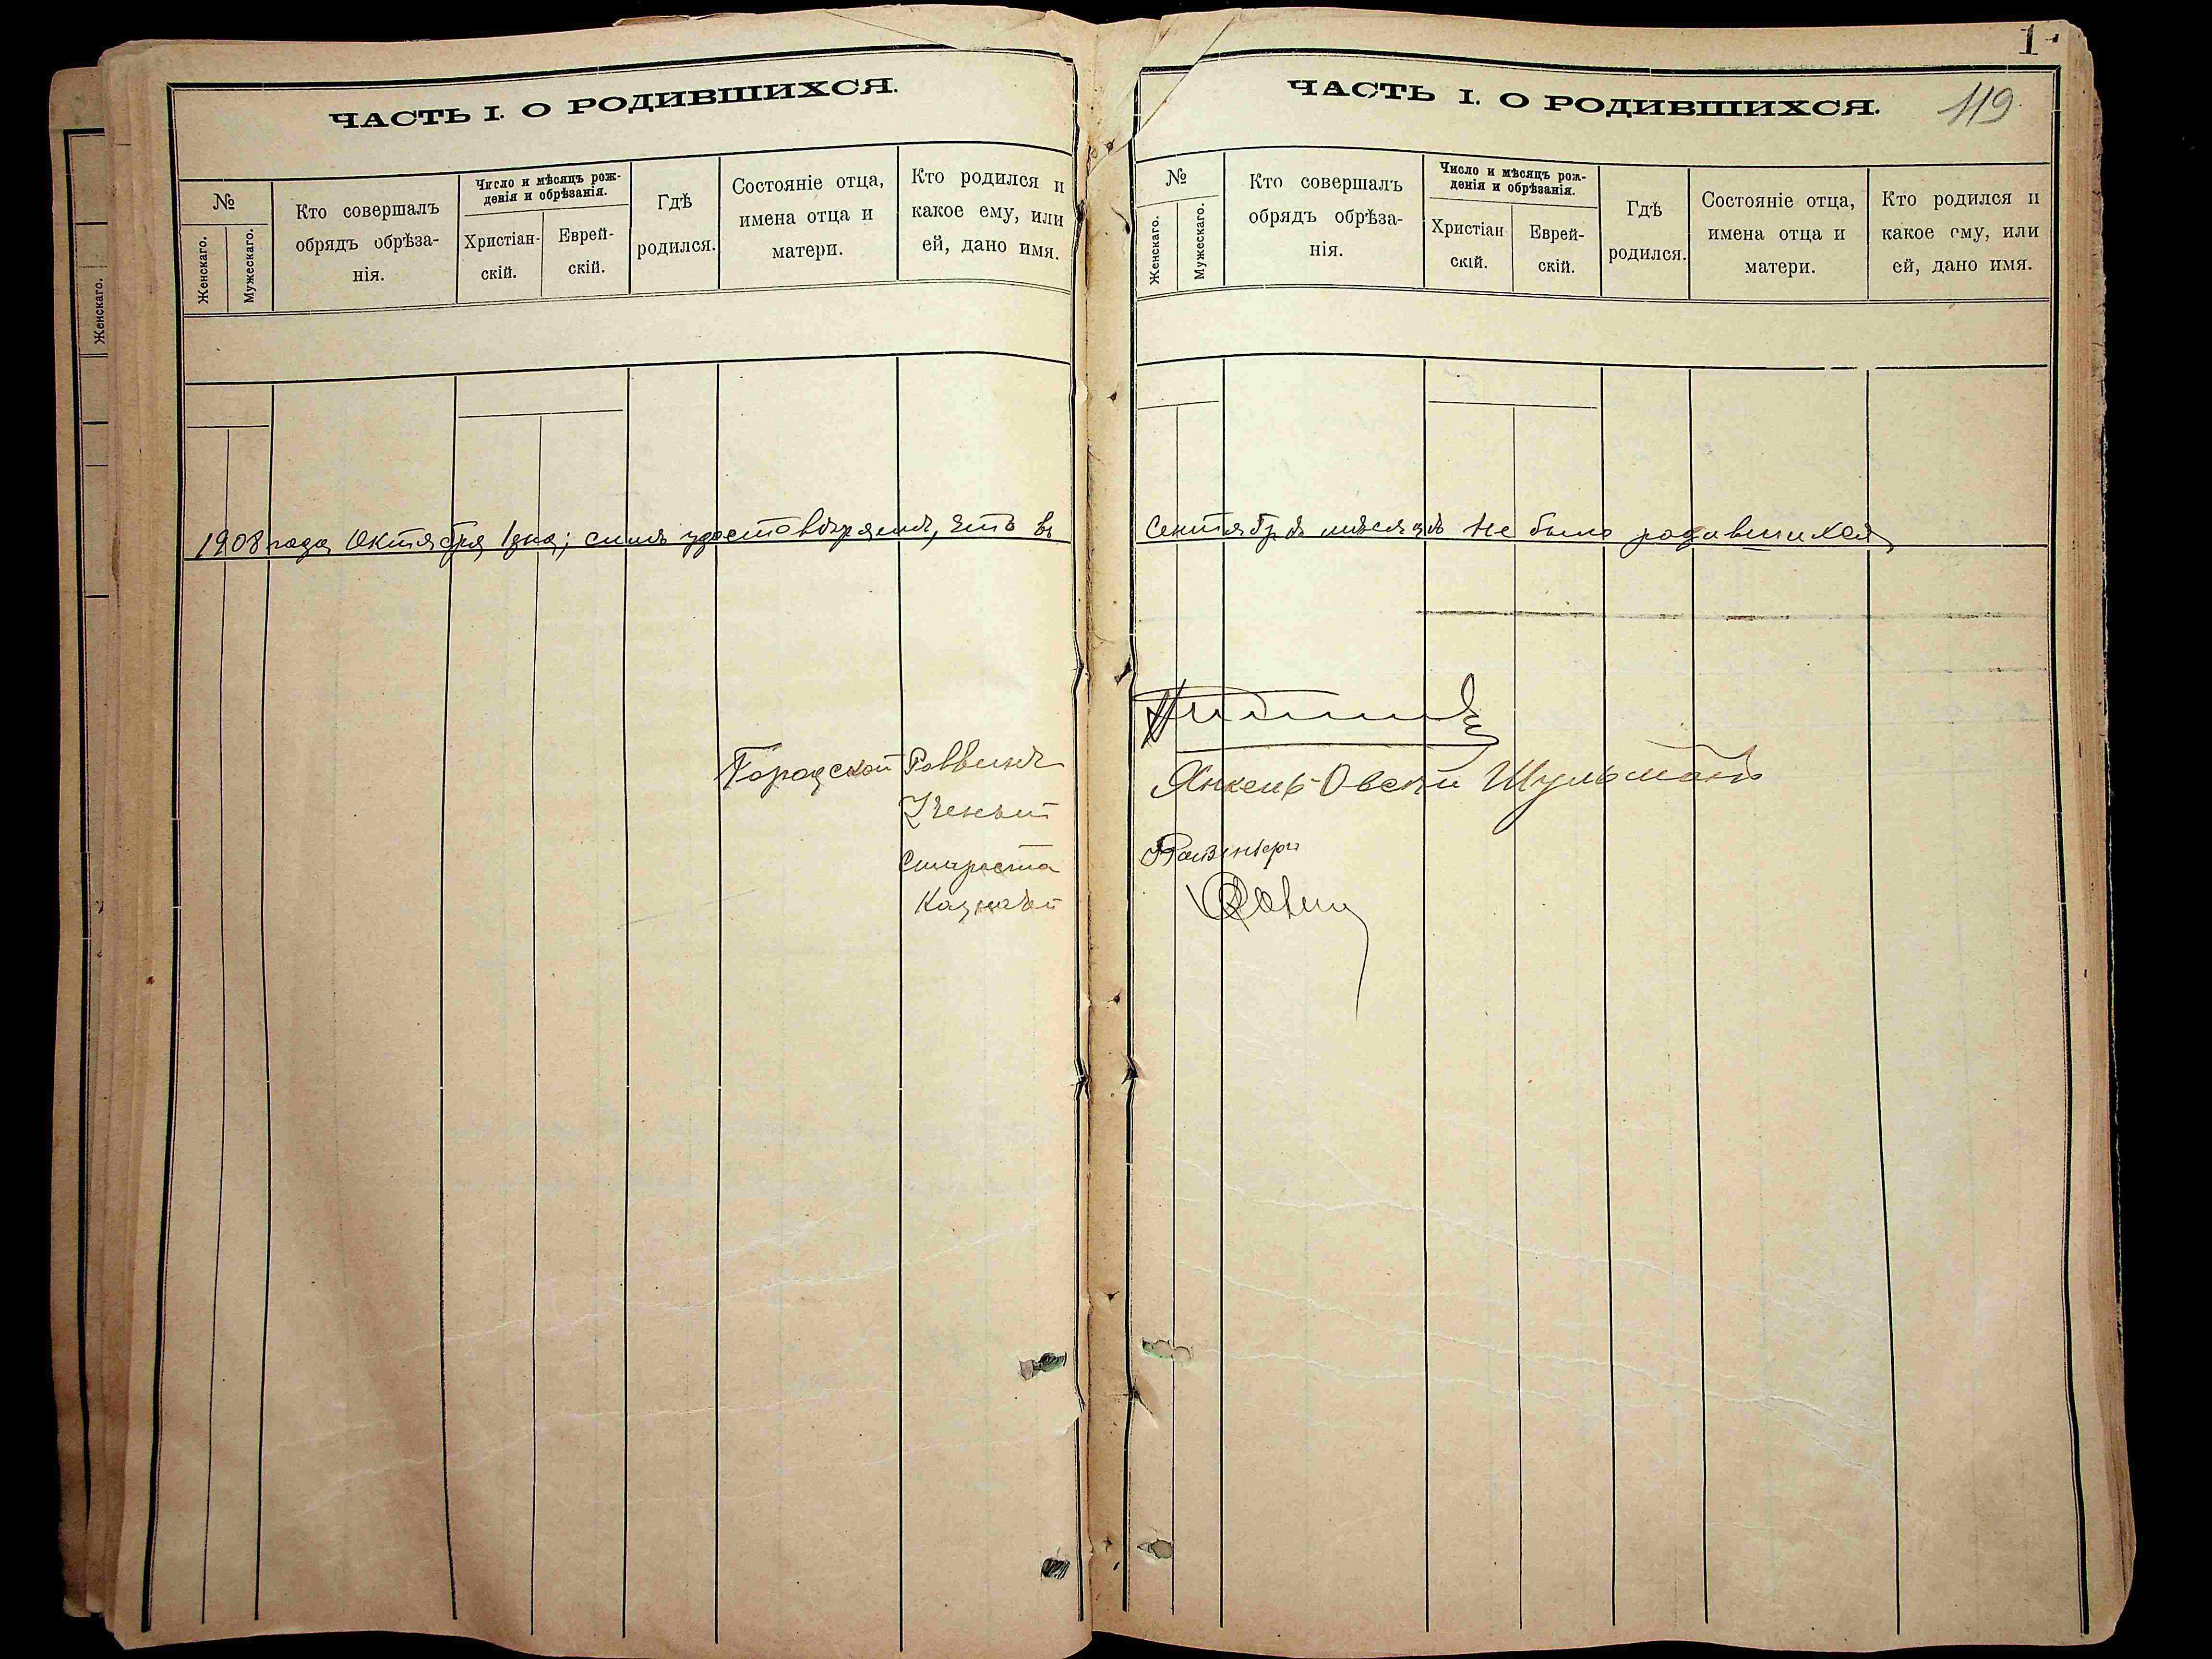 ЧАСТЬ I. О РОДИВШИХСЯ.
№
Женскаго.
Мужескаго.
Кто совершалъ
обрядъ обрѣза-
нія.
Число и мѣсяцъ рож-
денія и обрѣзанія.
Христіан-
скій.
Еврей-
скій.
Гдѣ
родился.
Состояніе отца,
имена отца и
матери.
Кто родился и
какое ему, или
ей, дано имя.
1908 года Октября 1 дня; симъ удостовѣряемъ, что въ
Городской Раввинъ
Ученый
Староста
Казначей
Женскаго.
1
ЧАСТЬ I. О РОДИВШИХСЯ.
119
№
Женскаго.
Мужескаго.
Кто совершалъ
обрядъ обрѣза-
нія.
Число и мѣсяцъ рож-
денія и обрѣзанія.
Христіан
скій.
Еврей-
скій.
Гдѣ
родился.
Состояніе отца,
имена отца и
матери.
Кто родился и
какое ему, или
ей, дано имя.
Сентябрѣ мѣсяцѣ не было родившихся
Янкель-Овсей Шульманъ